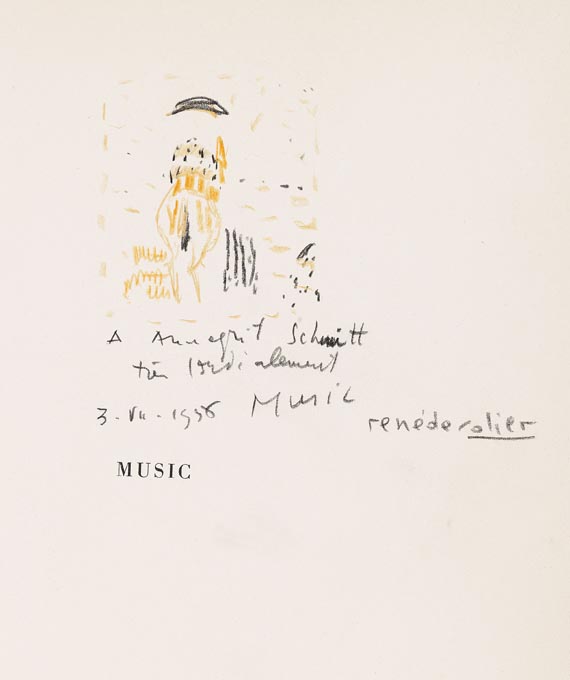 A Annegrit Schmitt
très cordialement
3-VII-1956 Music
renédesolier
MUSIC